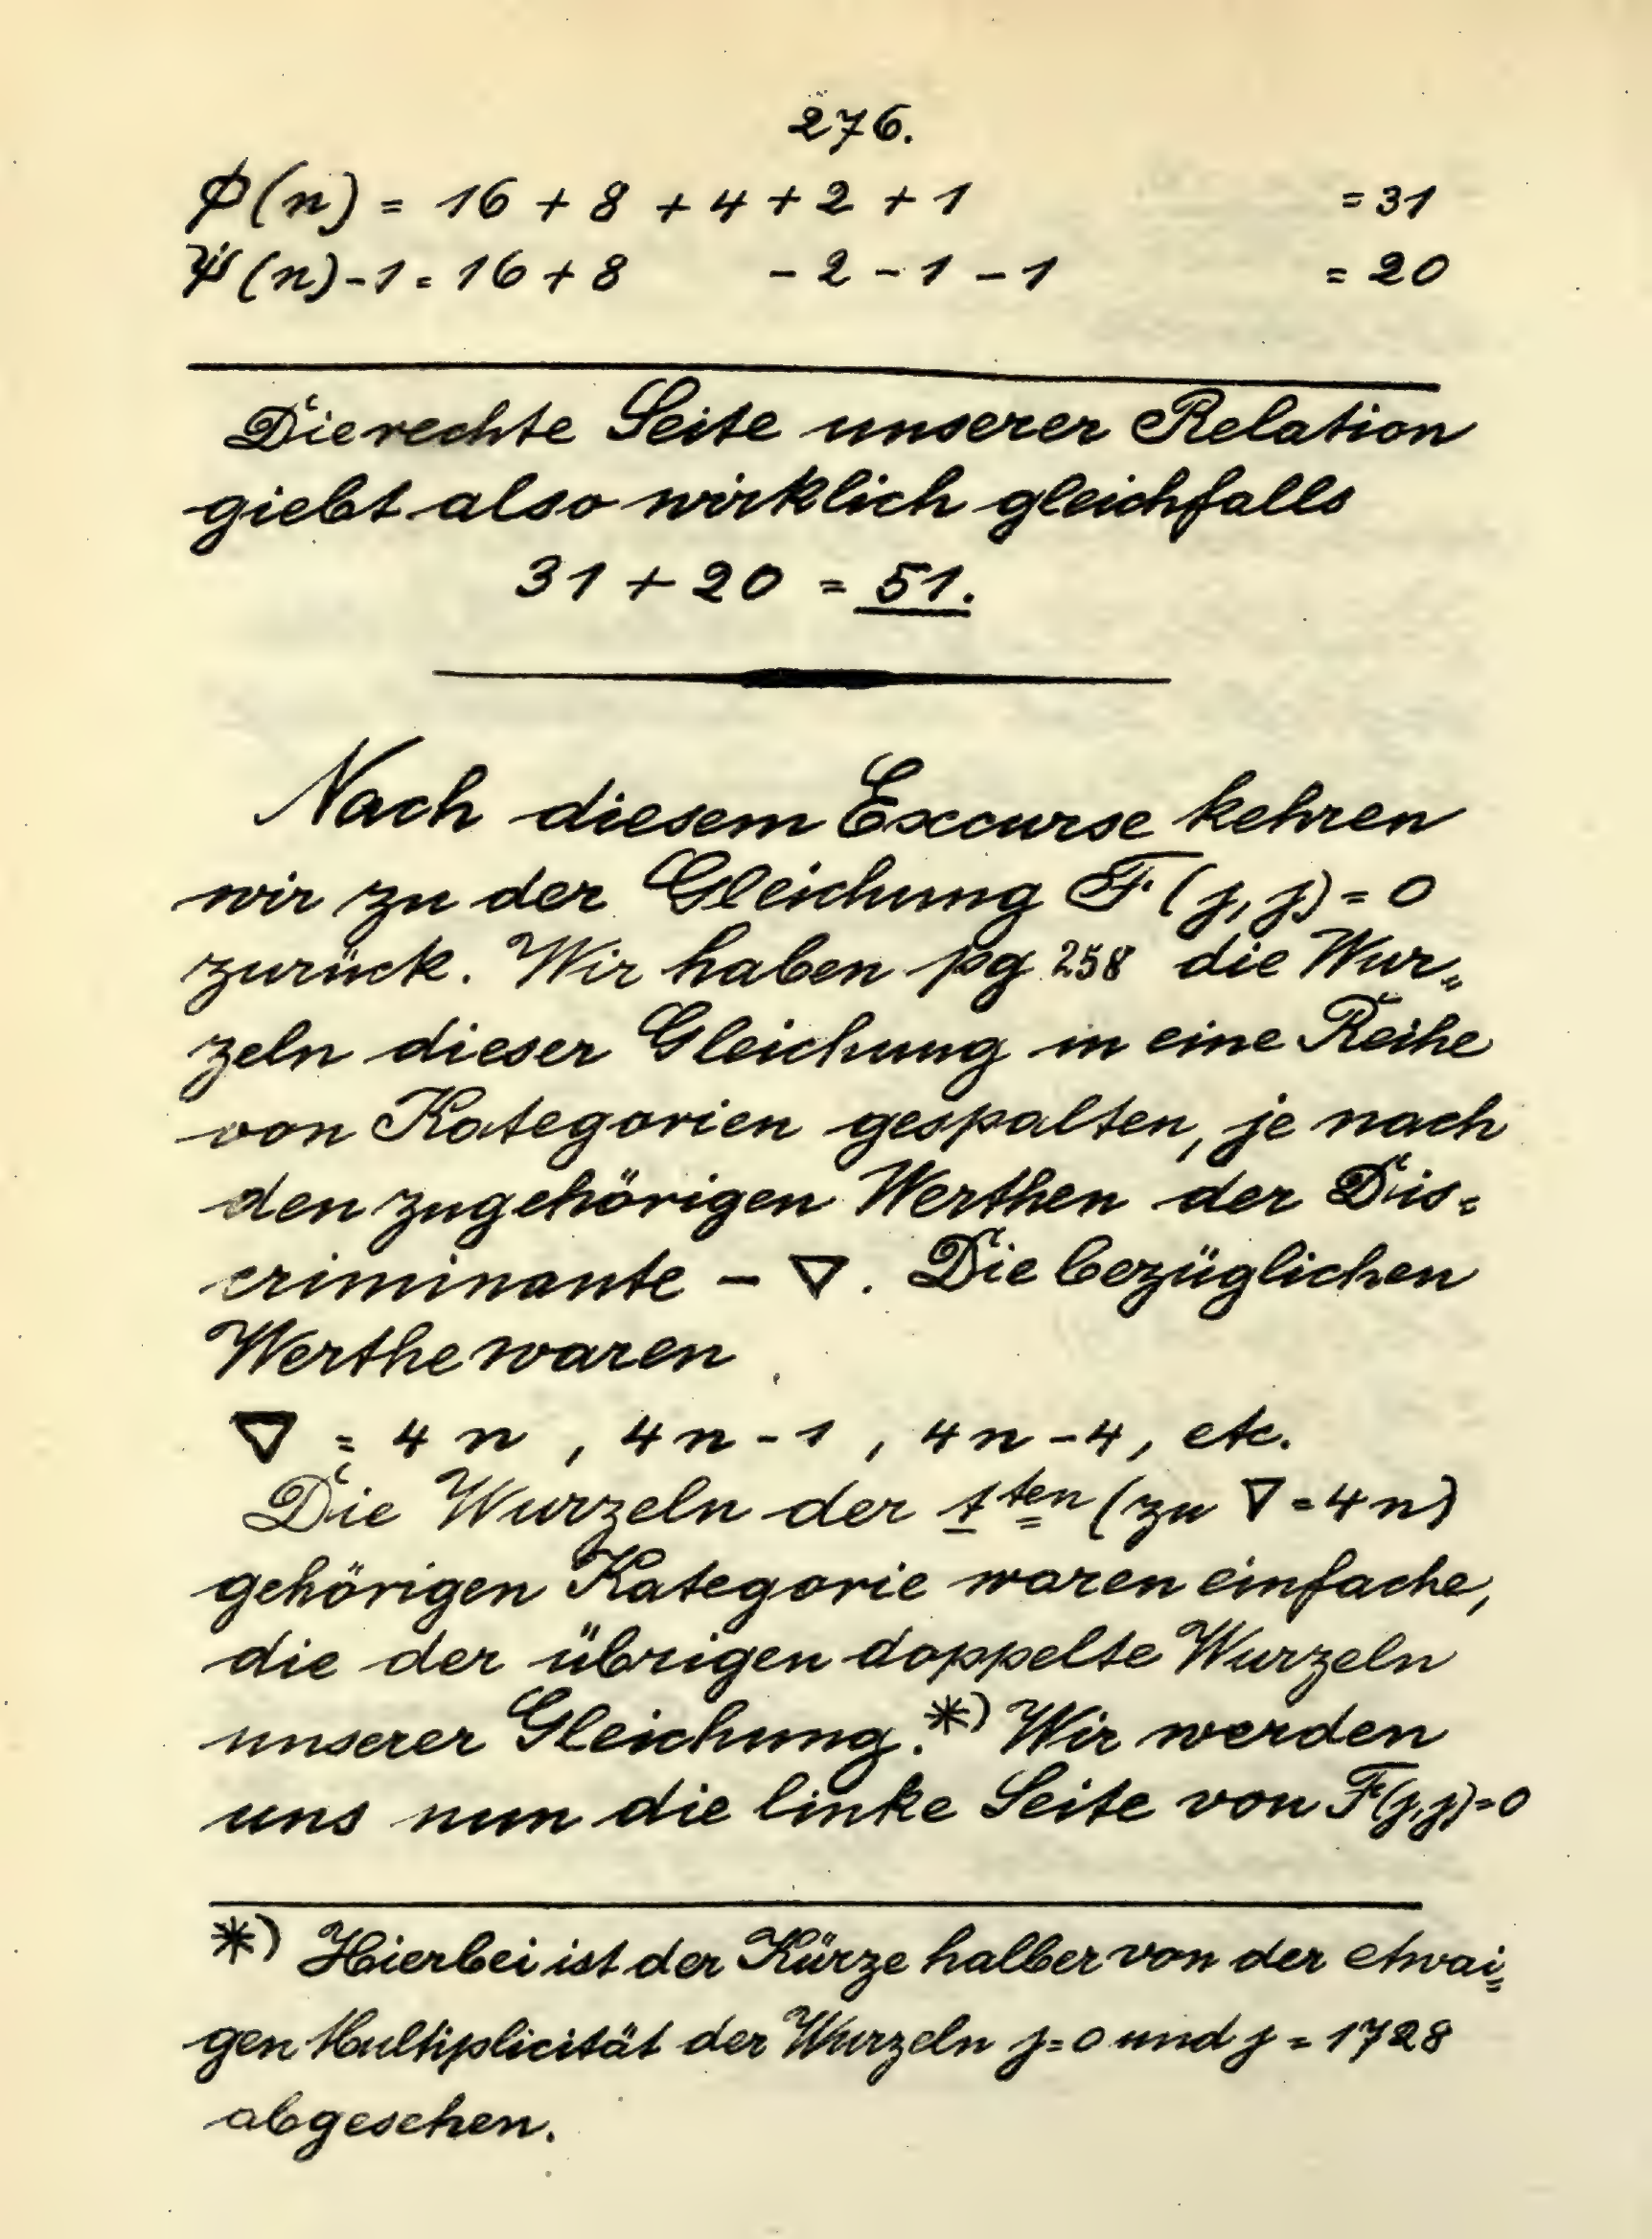 276.
Φ(n) = 16 + 8 + 4 + 2 + 1 = 31
Ψ(n) - 1 = 16 + 8 - 2 - 1 - 1 = 20
Die rechte Seite unserer Relation
giebt also wirklich gleichfalls
31 + 20 = 51.
Nach diesem Excurse kehren
wir zu der Gleichung F(j, j) = 0
zurück. Wir haben pg 258 die Wur„
zeln dieser Gleichung in eine Reihe
von Kategorien gespalten, je nach
den zugehörigen Werthen der Dis=
criminante – ∇. Die bezüglichen
Werthe waren
∇ = 4n, 4n-1, 4n-4, etc.
Die Wurzeln der 1ten (zu ∇ = 4n)
gehörigen Kategorie waren einfache,
die der übrigen doppelte Wurzeln
unserer Gleichung.*) Wir werden
uns nun die linke Seite von F(j,j)=0
*) Hierbei ist der Kürze halber von der etwai„
gen Multiplicität der Wurzeln j=0 und j = 1728
abgesehen.